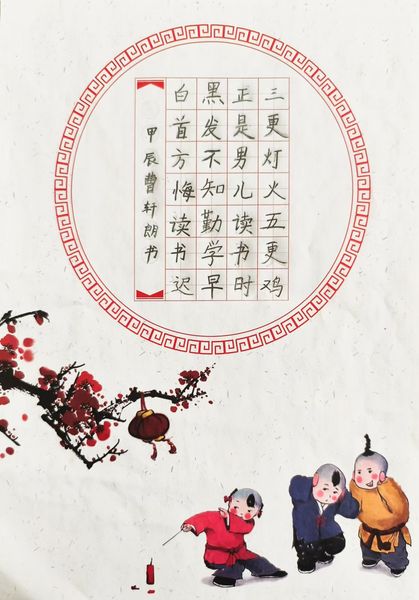 三更灯火五更鸡
正是男儿读书时
黑发不知勤学早
白首方悔读书迟
甲辰曹轩朗书